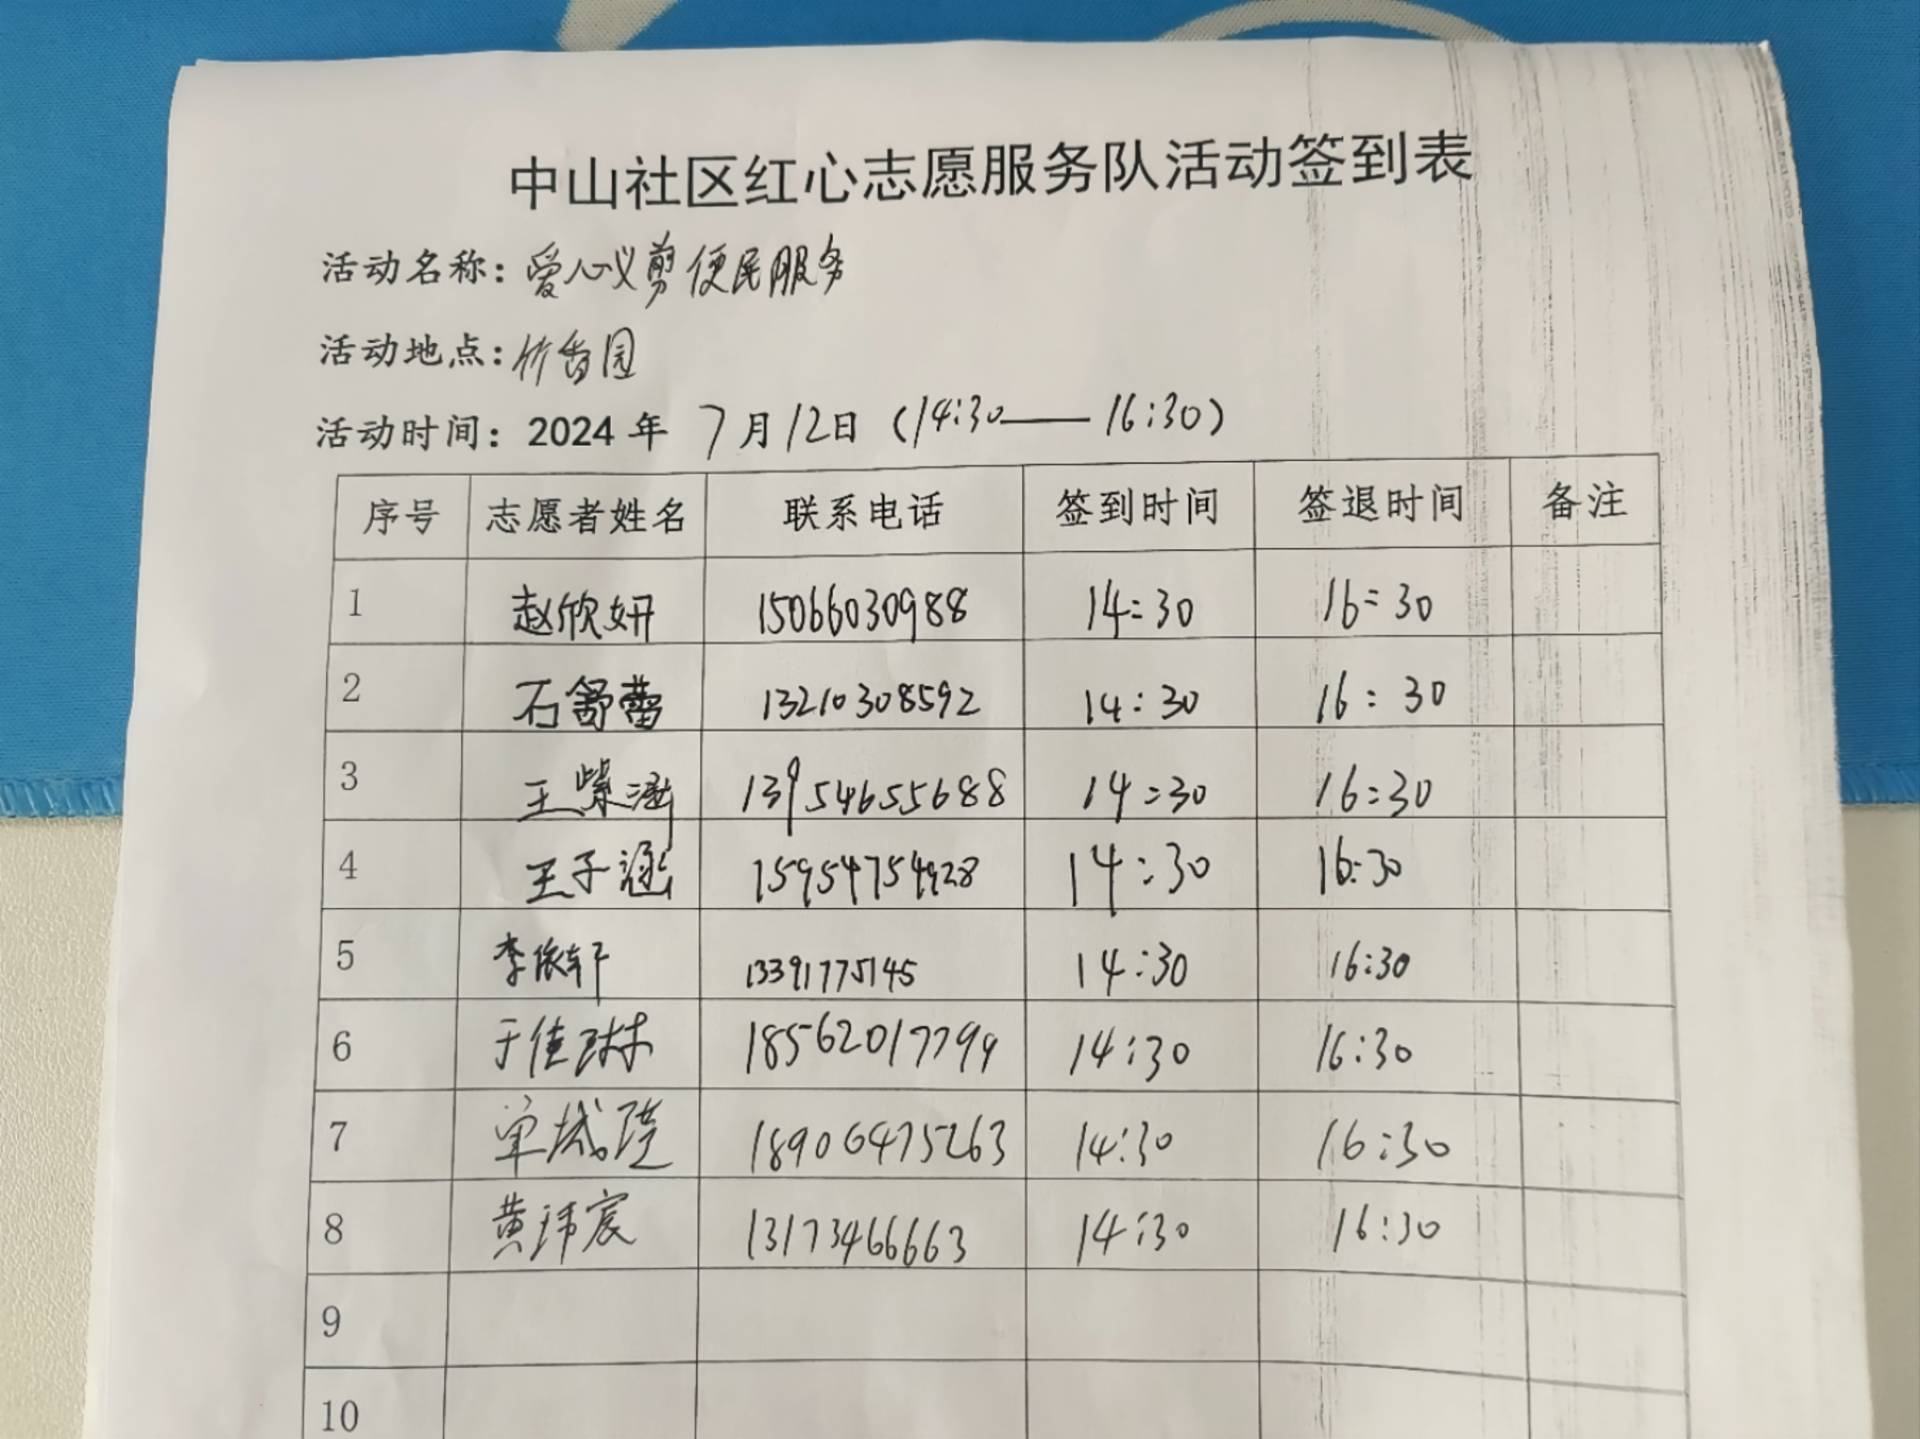 中山社区红心志愿服务队活动签到表
活动名称：爱心义剪便民服务
活动地点：竹香园
活动时间：2024年 7月12日（14:30——16:30）
序号 志愿者姓名 联系电话 签到时间 签退时间 备注
1 赵欣妍 15066030988 14:30 16:30
2 石舒蕾 13210308592 14:30 16:30
3 王紫涵 13954655688 14:30 16:30
4 王子涵 15954754928 14:30 16:30
5 李依轩 13391775145 14:30 16:30
6 于佳琳 18562017799 14:30 16:30
7 单 18906475263 14:30 16:30
8 黄玮宸 13173466663 14:30 16:30
9
10